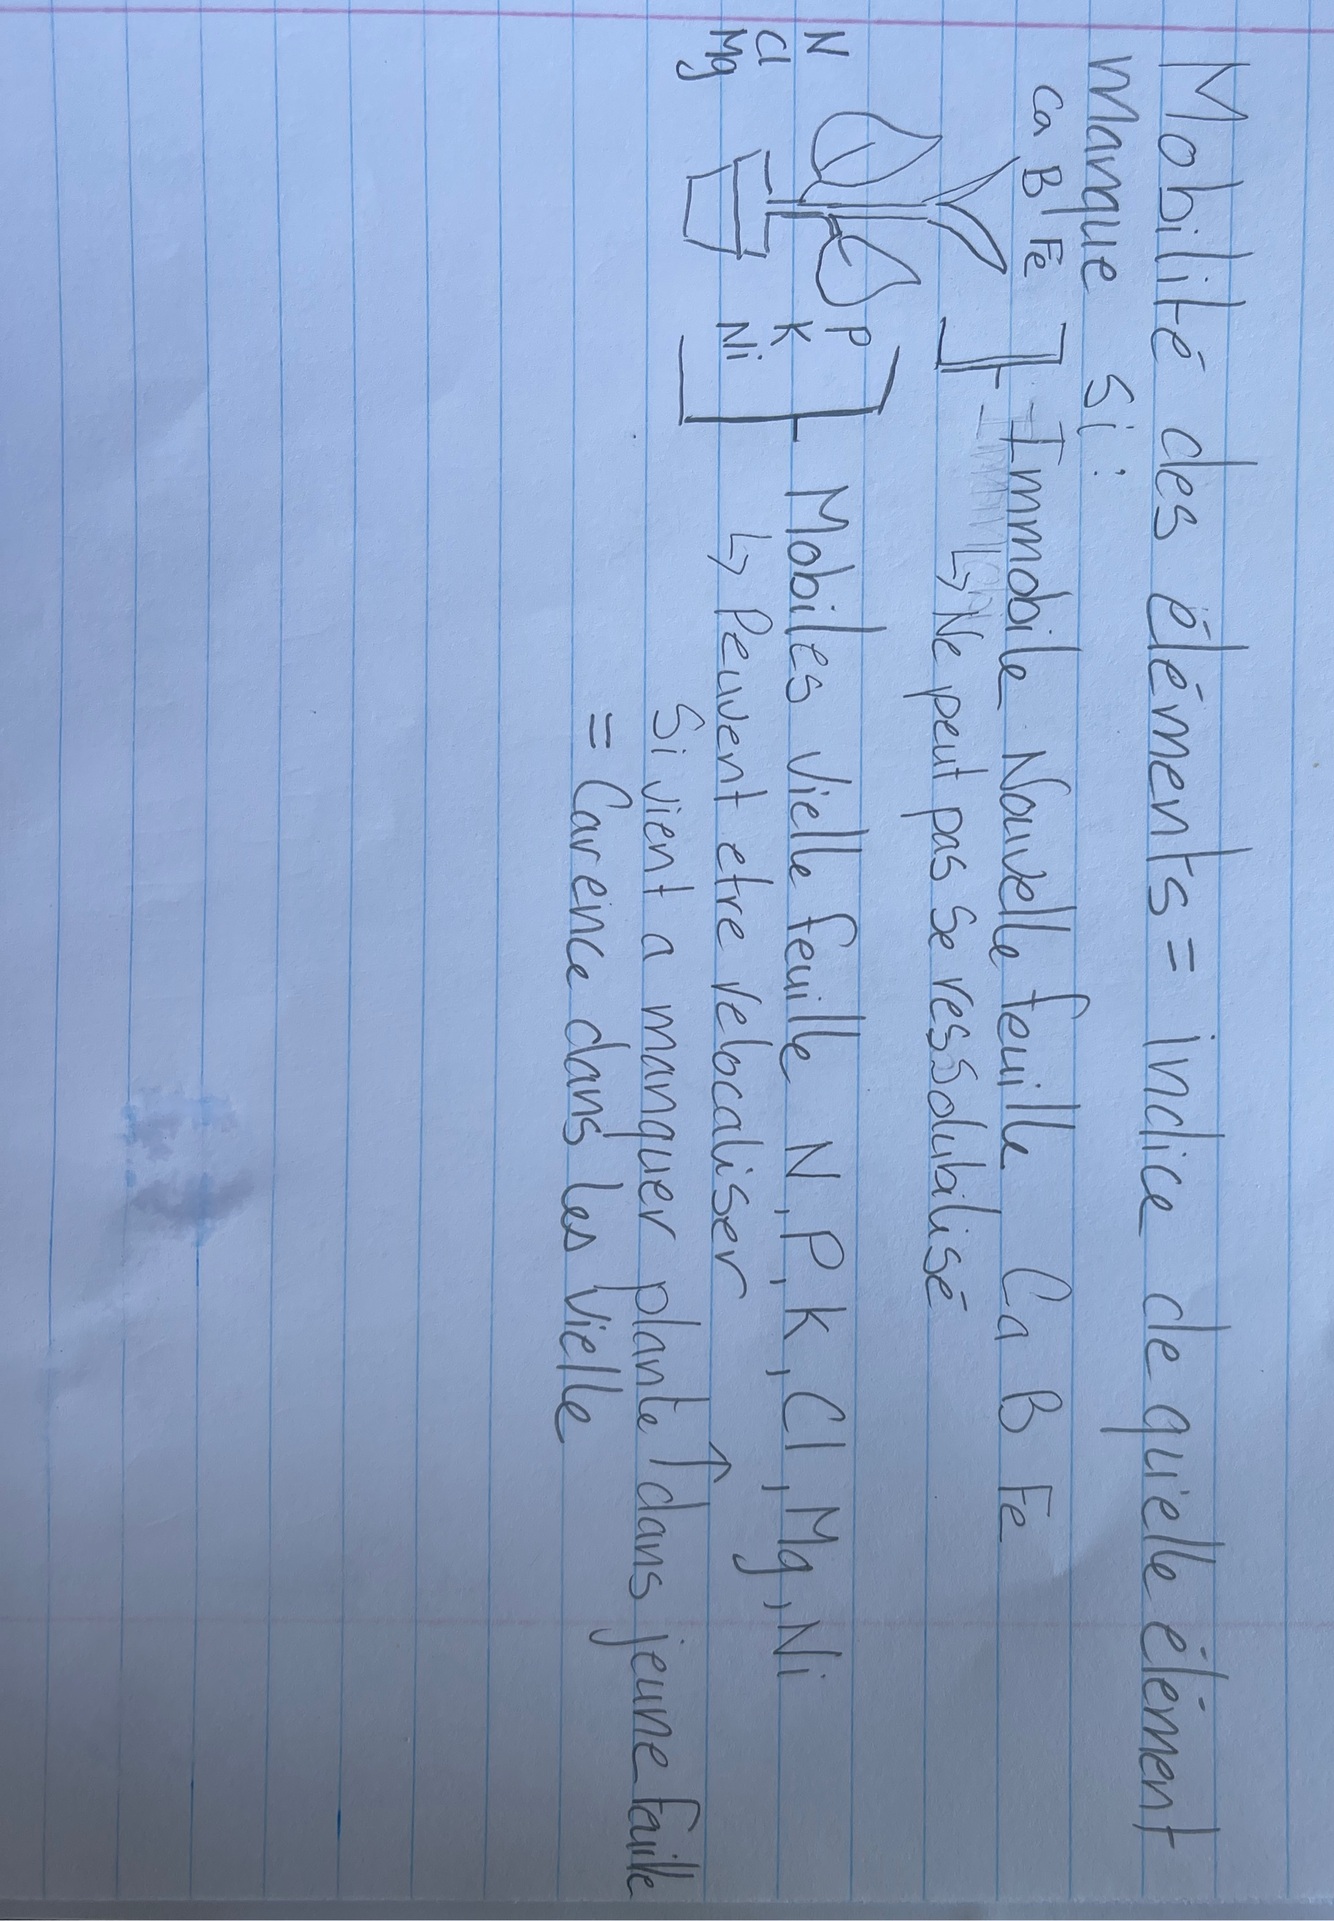 Mobilité des éléments = indice de quielle élément
manque si :
Ca B Fe
Immobile Nouvelle feuille Ca B Fe
↳ Ne peut pas se ressolubilisé
N P
Cl K
Mg Ni
Mobiles vielle feuille N, P, K, Cl, Mg, Ni
↳ Peuvent etre relocaliser
Si vient a manquer plante ↑ dans jeune faille
= Carence dans les vielle